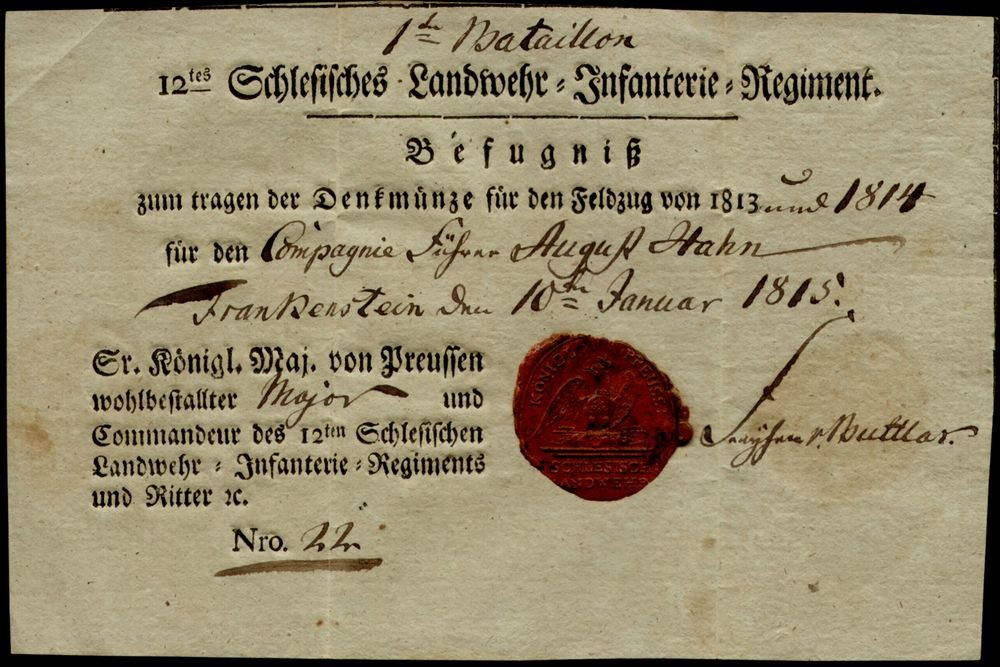 1te Bataillon
12tes Schlesisches Landwehr-Infanterie-Regiment.
Befugniß
zum tragen der Denkmünze für den Feldzug von 1813 und 1814
für den Compagnie Führer August Hahn
Frankenstein den 10ten Januar 1815.
Sr. Königl. Maj. von Preussen
wohlbestallter Major und
Commandeur des 12ten Schlesischen
Landwehr-Infanterie-Regiments
und Ritter ꝛc.
Nro. 22
KÖNIGL PREUSS
SCHLESISCHE
LANDWEHR
v. Buttlar.